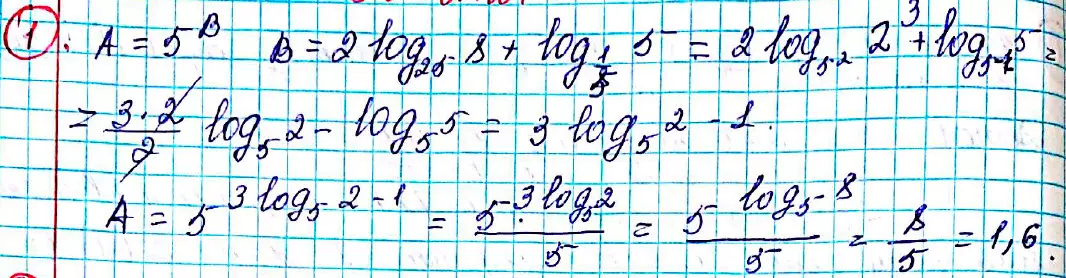 1. A = 5^B B = 2 log_25 8 + log_{1/5} 5 = 2 log_{5^2} 2^3 + log_{5^{-1}} 5 =
= (3·2)/2 log_5 2 - log_5 5 = 3 log_5 2 - 1.
A = 5^{3 log_5 2 - 1} = 5^{3 log_5 2}/5 = 5^{log_5 8}/5 = 8/5 = 1,6.